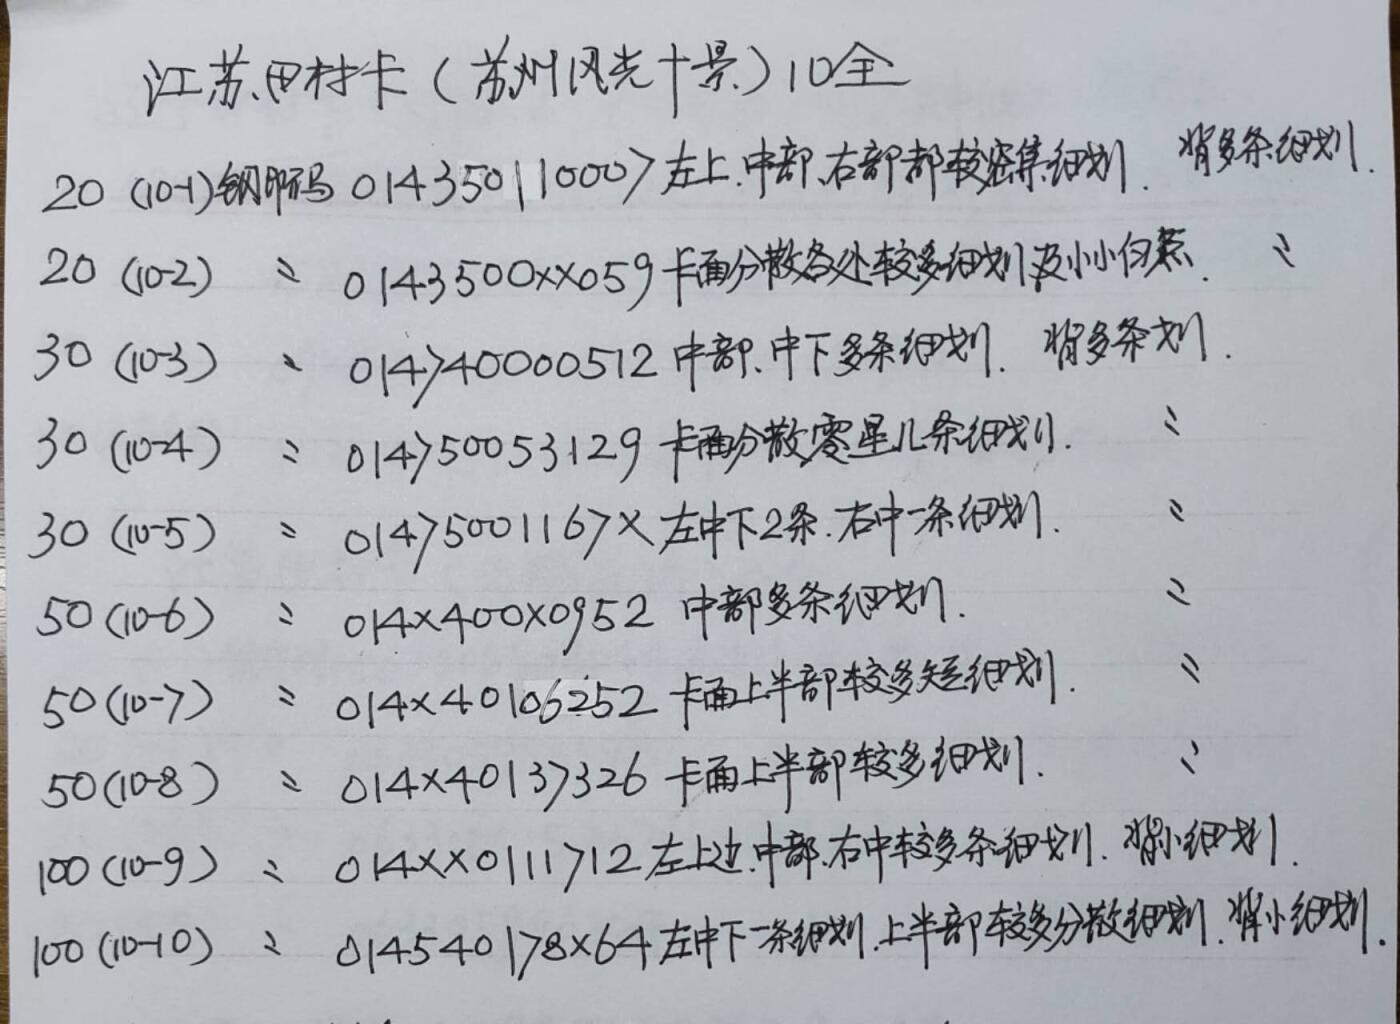 江苏田村卡（苏州风光十景）10全
20 (10-1)钢印码 014350110007 左上.中部、右部都较密集细划. 背多条细划.
20 (10-2) 〃 0143500xx059 卡面分散各处较多细划及小小白点. 〃
30 (10-3) 〃 014740000512 中部、中下多条细划. 背多条划.
30 (10-4) 〃 014750053129 卡面分散零星几条细划. 〃
30 (10-5) 〃 01475001167x 左中下2条.右中一条细划. 〃
50 (10-6) 〃 014x400x0952 中部多条细划. 〃
50 (10-7) 〃 014x40106252 卡面上半部较多短细划. 〃
50 (10-8) 〃 014x40137326 卡面上半部较多细划. 〃
100 (10-9) 〃 014xx0111712 左上边.中部.右中较多条细划. 背小细划.
100 (10-10) 〃 014540178x64 左中下一条细划.上半部较多分散细划. 背小细划.